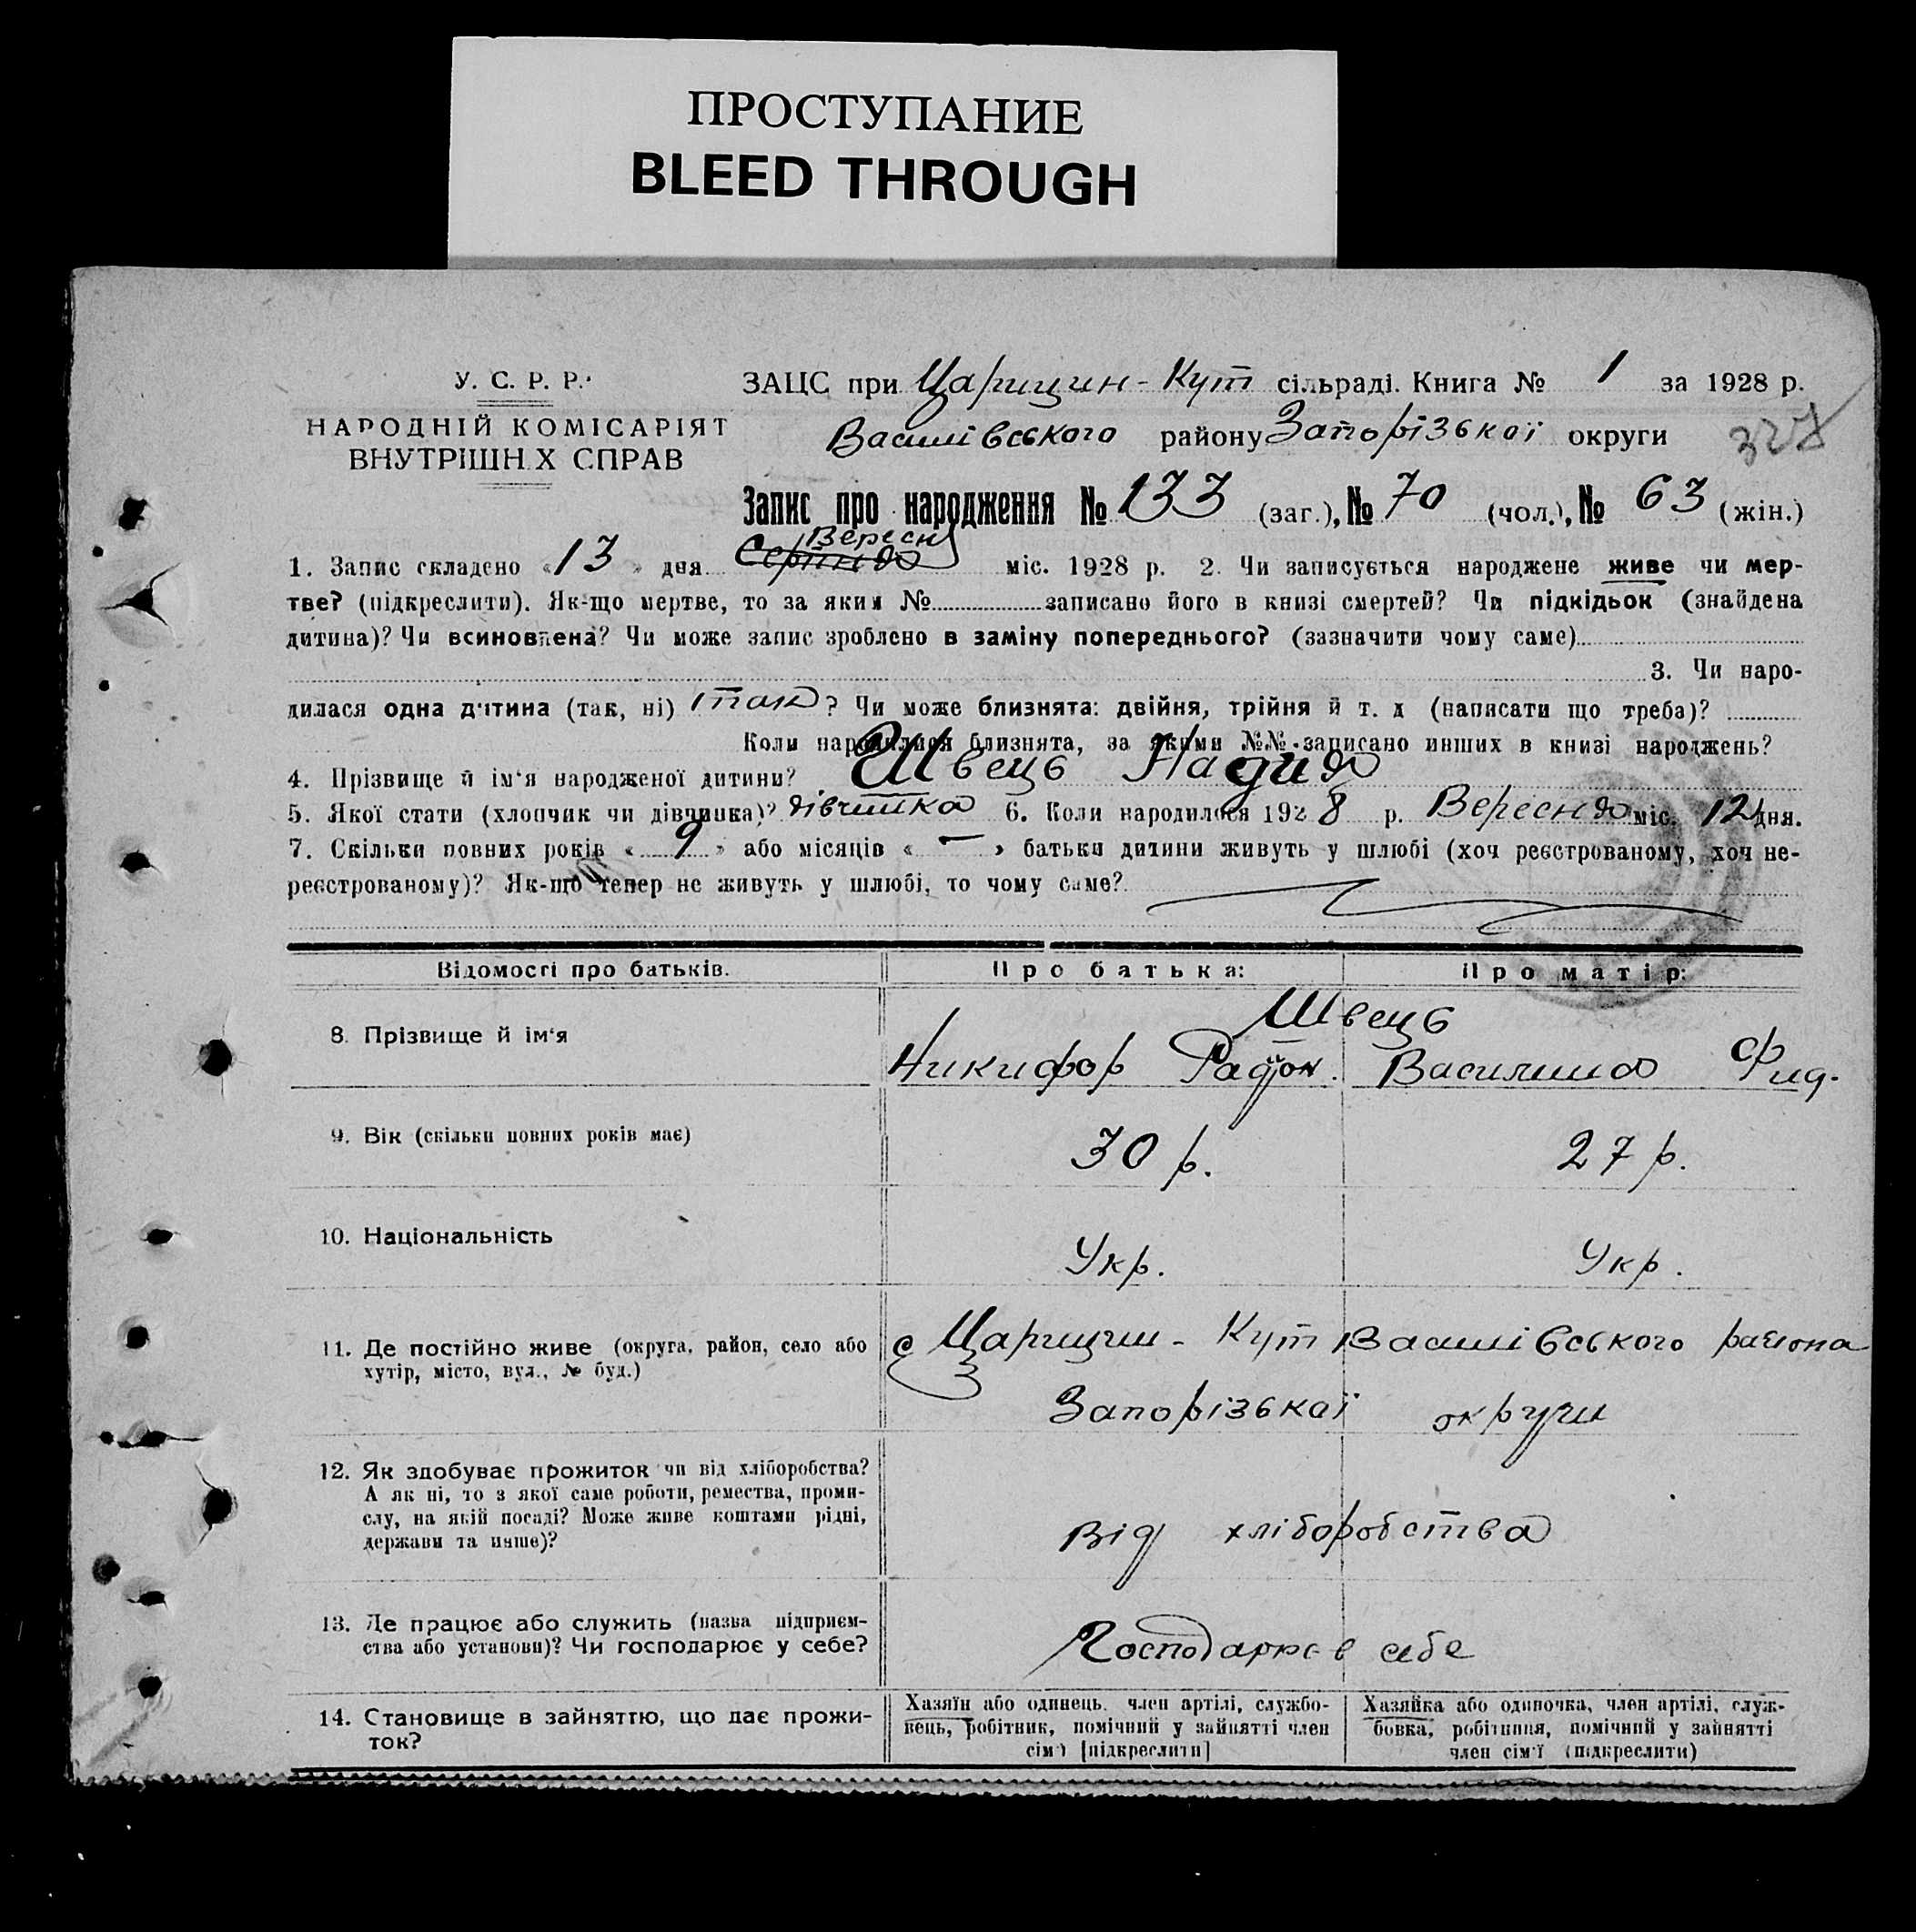 ПРОСТУПАНИЕ
BLEED THROUGH
У. С. Р. Р.
НАРОДНІЙ КОМІСАРІЯТ
ВНУТРІШН.Х СПРАВ
ЗАЦС при Царицин-Кут сільраді. Книга № 1 за 1928 р.
Василівського району Запорізької округи
327
Запис про народження № 133 (заг.), № 70 (чол.), № 63 (жін.)
Вересня
1. Запис складено «13» дня Серпня міс. 1928 р. 2. Чи записується народжене живе чи мер-
тве? (підкреслити). Як-що мертве, то за яким № записано його в книзі смертей? Чи підкідьок (знайдена
дитина)? Чи всиновлена? Чи може запис зроблено в заміну попереднього? (зазначити чому саме)
3. Чи наро-
дилася одна дитина (так, ні) так? Чи може близнята: двійня, трійня й т. д (написати що треба)?
Коли народилися близнята, за якими №№ записано инших в книзі народжень?
4. Прізвище й ім'я народженої дитини? Швець Надія
5. Якої стати (хлопчик чи дівчинка)? дівчинка 6. Коли народилося 1928 р. Вересня міс. 12 дня.
7. Скільки повних років «9» або місяців «—» батьки дитини живуть у шлюбі (хоч реєстрованому, хоч не-
реєстрованому)? Як-що тепер не живуть у шлюбі, то чому саме?
Відомості про батьків.
Про батька:
Про матір:
8. Прізвище й ім'я
Швець
Никифор Радіон.
Василина Фид.
9. Вік (скільки повних років має)
30 р.
27 р.
10. Національність
Укр.
Укр.
11. Де постійно живе (округа, район, село або
хутір, місто, вул., № буд.)
с Царицин-Кут Василівського района
Запорізької округи
12. Як здобуває прожиток чи від хліборобства?
А як ні, то з якої саме роботи, ремества, проми-
слу, на якій посаді? Може живе коштами рідні,
держави та инше)?
Від хліборобства
13. Де працює або служить (назва підприєм-
ства або установи)? Чи господарює у себе?
Господарює в себе
14. Становище в зайняттю, що дає прожи-
ток?
Хазяїн або одинець, член артілі, службо-
вець, робітник, помічний у зайнятті член
сім'ї [підкреслити]
Хазяйка або одиночка, член артілі, служ-
бовка, робітниця, помічний у зайнятті
член сім'ї (підкреслити)